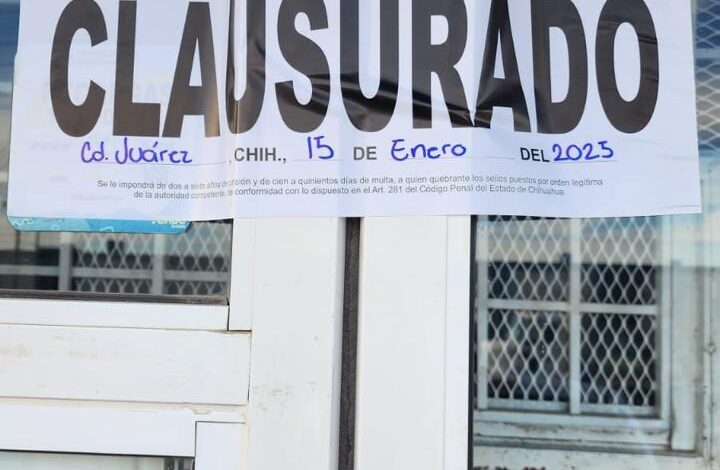 CLAUSURADO
Cd. Juárez ,CHIH., 15 DE Enero DEL 2025
Se le impondrá de dos a siete años de prisión y de cien a quinientos días de multa, a quien quebrante los sellos puestos por orden legítima
de la autoridad competente, de conformidad con lo dispuesto en el Art. 281 del Código Penal del Estado de Chihuahua.